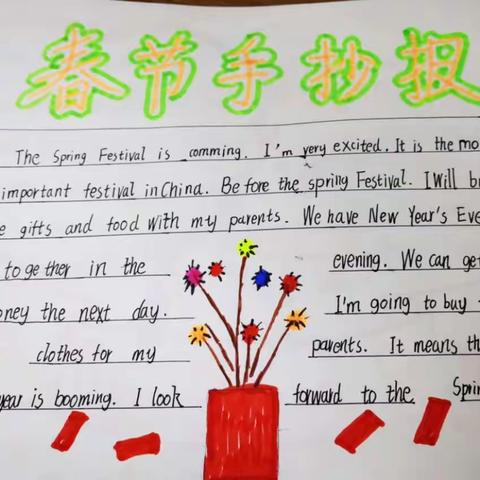 春节手抄报
The Spring Festival is comming. I'm very excited. It is the mo
important festival in China. Before the spring Festival. I Will b
gifts and food with my parents. We have New Year's Eve
together in the evening. We can ge
oney the next day. I'm going to buy
clothes for my parents. It means th
year is booming. I look forward to the Sprin